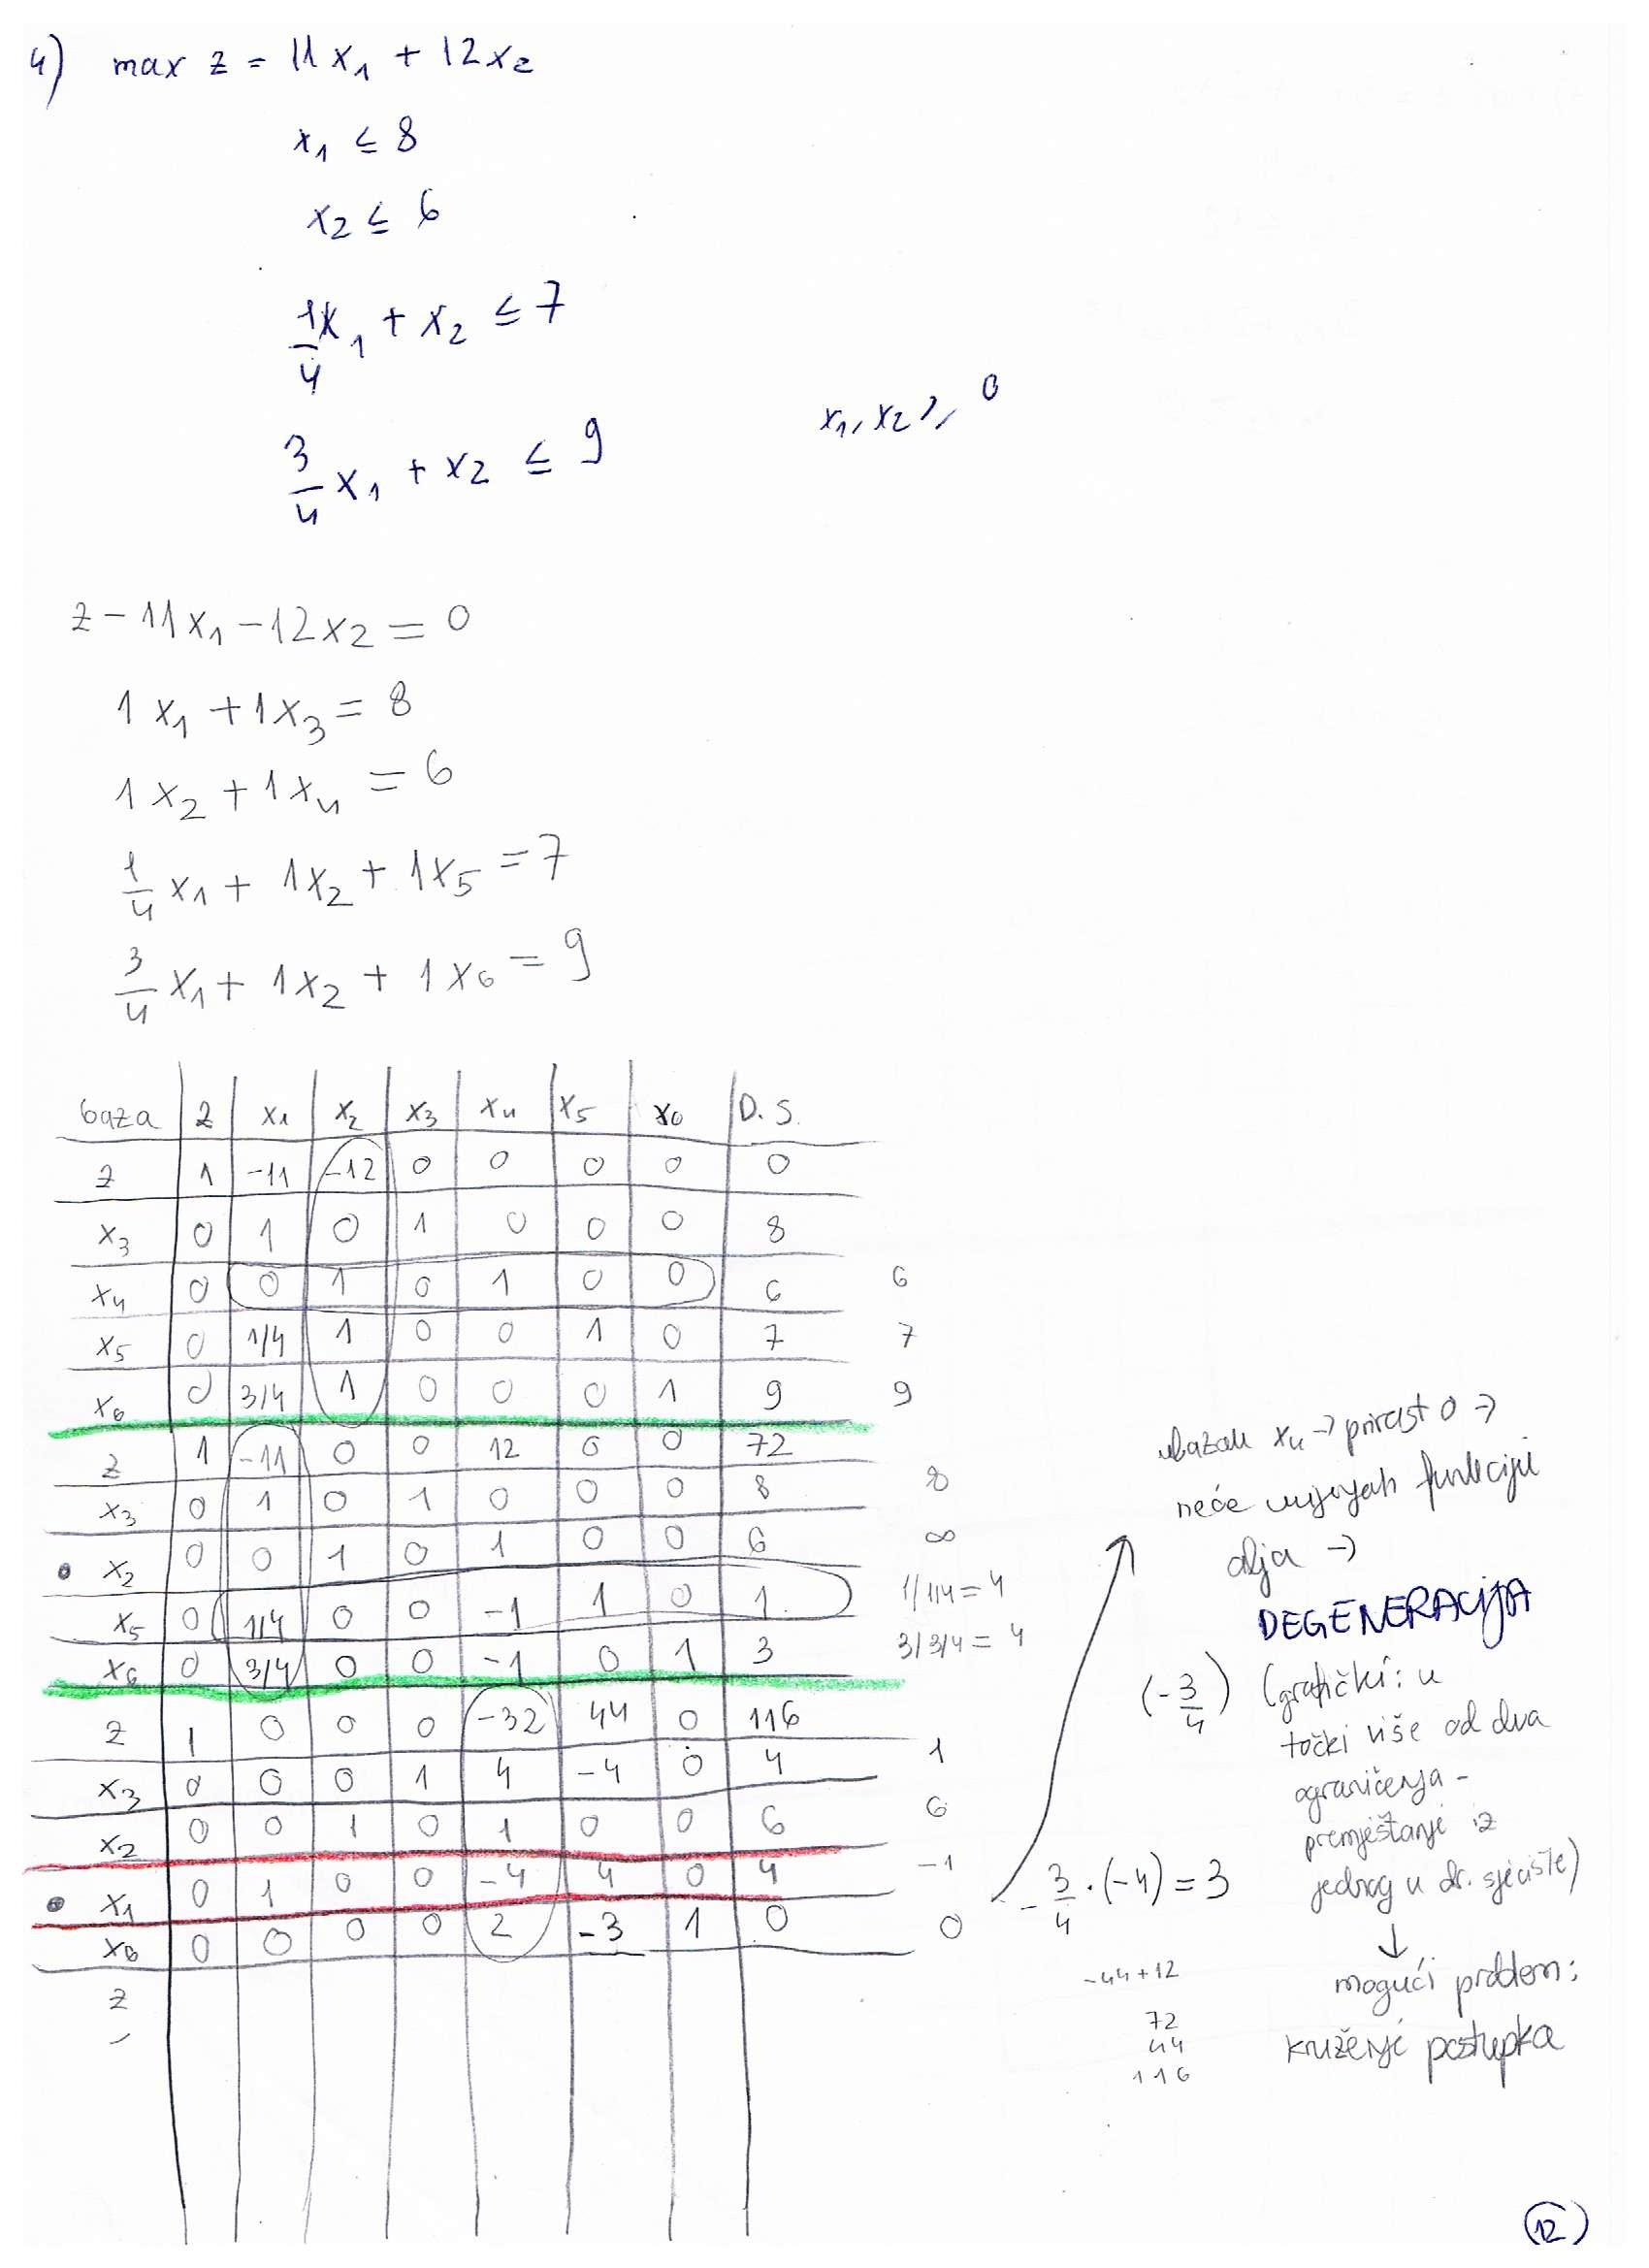 4) max z = 11x₁ + 12x₂
x₁ ≤ 8
x₂ ≤ 6
1/4 x₁ + x₂ ≤ 7
3/4 x₁ + x₂ ≤ 9
x₁, x₂ ≥ 0
z - 11x₁ - 12x₂ = 0
1x₁ + 1x₃ = 8
1x₂ + 1x₄ = 6
1/4 x₁ + 1x₂ + 1x₅ = 7
3/4 x₁ + 1x₂ + 1x₆ = 9
baza z x₁ x₂ x₃ x₄ x₅ x₆ D.S.
z 1 -11 -12 0 0 0 0 0
x₃ 0 1 0 1 0 0 0 8
x₄ 0 0 1 0 1 0 0 6 6
x₅ 0 1/4 1 0 0 1 0 7 7
x₆ 0 3/4 1 0 0 0 1 9 9
z 1 -11 0 0 12 0 0 72
x₃ 0 1 0 1 0 0 0 8 8
• x₂ 0 0 1 0 1 0 0 6 ∞
x₅ 0 1/4 0 0 -1 1 0 1 1/1/4 = 4
x₆ 0 3/4 0 0 -1 0 1 3 3/3/4 = 4
z 1 0 0 0 -32 44 0 116
x₃ 0 0 0 1 4 -4 0 4 1
x₂ 0 0 1 0 1 0 0 6 6
• x₁ 0 1 0 0 -4 4 0 4 -1
x₆ 0 0 0 0 2 -3 1 0 0
z
ulazak x₄ → prirast 0 →
neće funkciju
cilja →
DEGENERACIJA
(-3/4) (grafički: u
točki više od dva
ograničenja -
premještanje iz
jednog u dr. sjecište)
↓
mogući problem:
kruženje postupka
-3/4 · (-4) = 3
-44+12
72
44
116
12